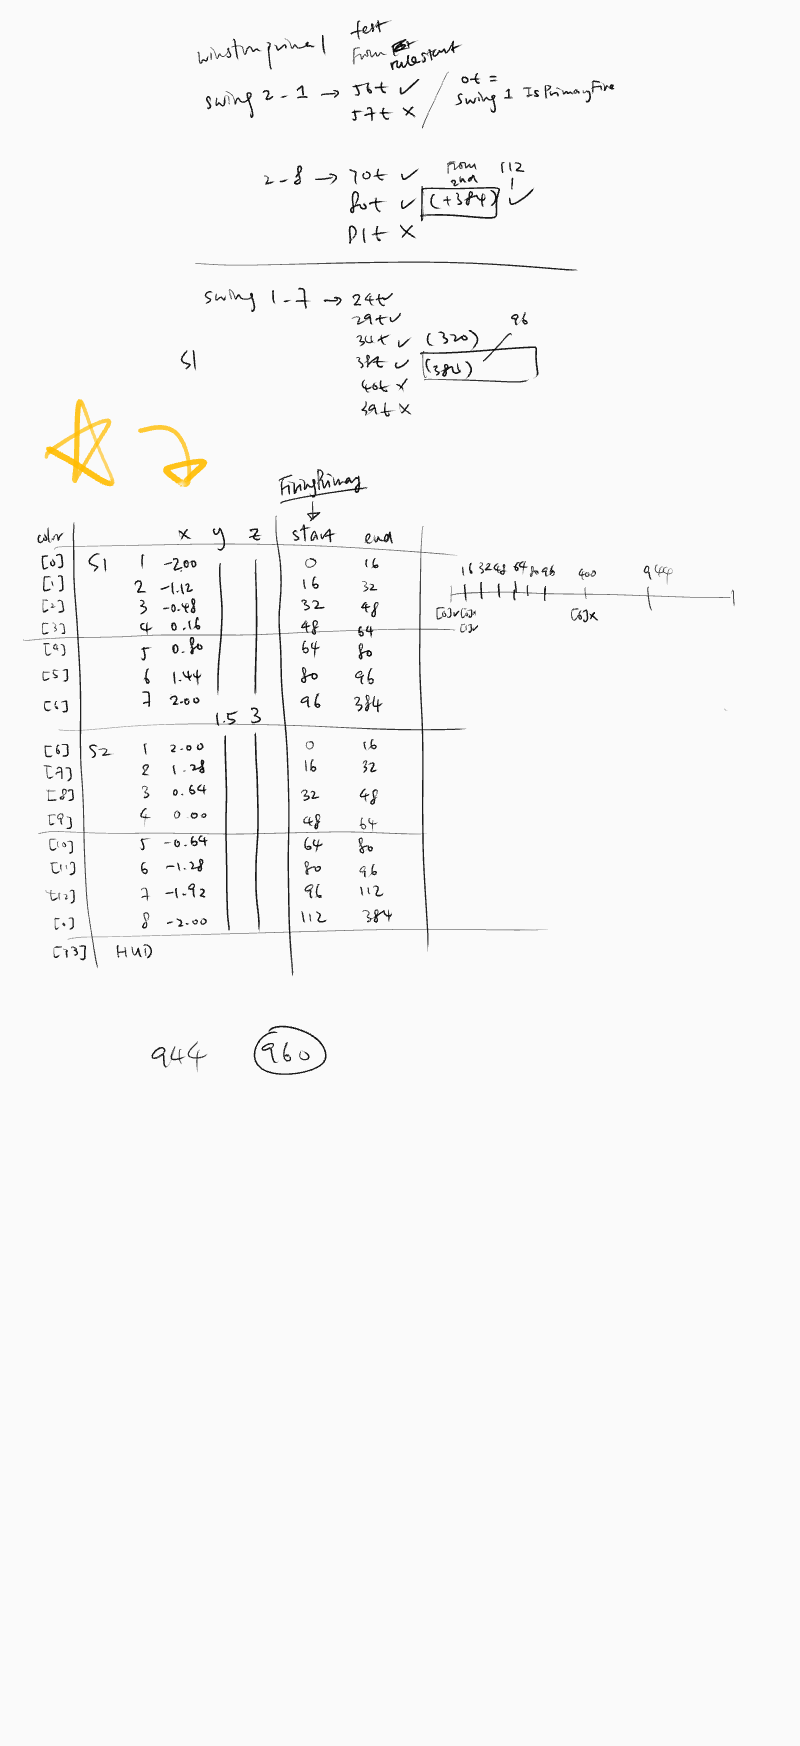 winston primal test
From rule start
swing 2-1 → 56t ✓ / 0t =
57t × Swing 1 IsPrimaryFire
2-8 → 70t ✓ From 2nd 112
80t ✓ (+384) ✓
81t ×
swing 1-7 → 24t ✓
29t ✓ 96
34t ✓ (320)
S1 38t ✓ (384)
40t ×
39t ×
FiringPrimary
color x y z start end
[0] S1 1 -2.00 0 16
[1] 2 -1.12 16 32
[2] 3 -0.48 32 48
[3] 4 0.16 48 64
[4] 5 0.80 64 80
[5] 6 1.44 80 96
[6] 7 2.00 96 384
1.5 3
[6] S2 1 2.00 0 16
[7] 2 1.28 16 32
[8] 3 0.64 32 48
[9] 4 0.00 48 64
[10] 5 -0.64 64 80
[11] 6 -1.28 80 96
[12] 7 -1.92 96 112
[0] 8 -2.00 112 384
[13] HUD
16 32 48 64 80 96 400 944
[0]✓ [0]× [6]×
[1]✓
944 960